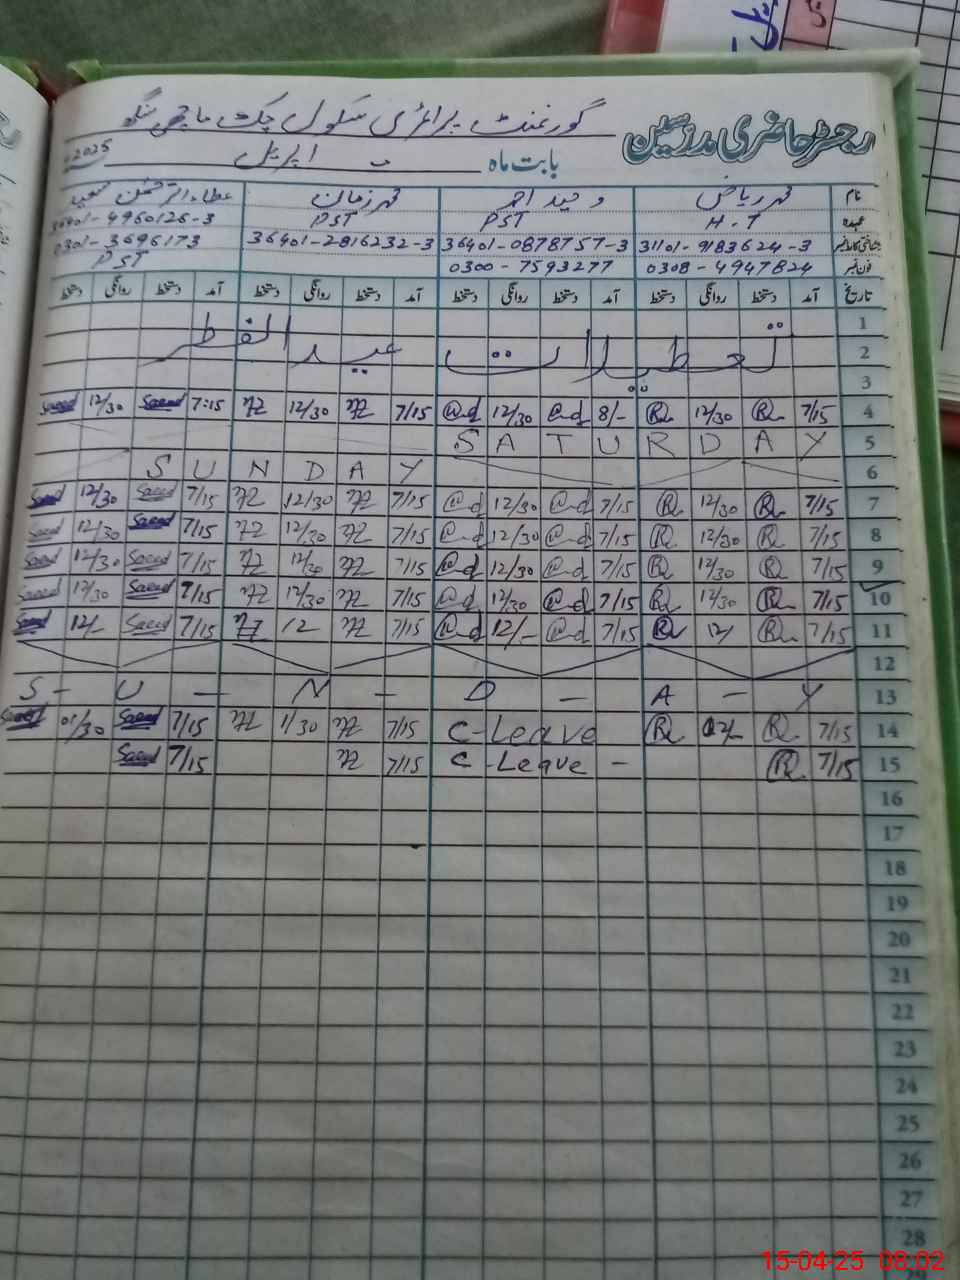 رجسٹر حاضری مدرسین گورنمنٹ پرائمری سکول چک ماچھی سنگھ
بابت ماہ اپریل 2025
نام محمد ریاض وحید احمد محمد زمان عطاء الرحمٰن سعید
عہدہ H.T PST PST 36401-4960126-3
شناختی کارڈ نمبر 31101-9183624-3 36401-0878757-3 36401-2816232-3 0301-3696173
فون نمبر 0308-4947824 0300-7593277 PST
تاریخ آمد دستخط روانگی دستخط آمد دستخط روانگی دستخط آمد دستخط روانگی دستخط آمد دستخط روانگی دستخط
1
2 تعطیلات عید الفطر
3
Saeed 12/30 Saeed 7:15 12/30 7/15 12/30 8/- 12/30 7/15 4
S A T U R D A Y 5
S U N D A Y 6
Saeed 12/30 Saeed 7/15 12/30 7/15 12/30 7/15 12/30 7/15 7
Saeed 12/30 Saeed 7/15 12/30 7/15 12/30 7/15 12/30 7/15 8
Saeed 12/30 Saeed 7/15 12/30 7/15 12/30 7/15 12/30 7/15 9
Saeed 12/30 Saeed 7/15 12/30 7/15 12/30 7/15 12/30 7/15 10
Saeed 12/- Saeed 7/15 12 7/15 12/- 7/15 12/ 7/15 11
12
S - U - N - D - A - Y 13
Saeed 01/30 Saeed 7/15 1/30 7/15 C-Leave 7/15 14
Saeed 7/15 7/15 C-Leave - 7/15 15
16
17
18
19
20
21
22
23
24
25
26
27
28
15-04-25 08:02